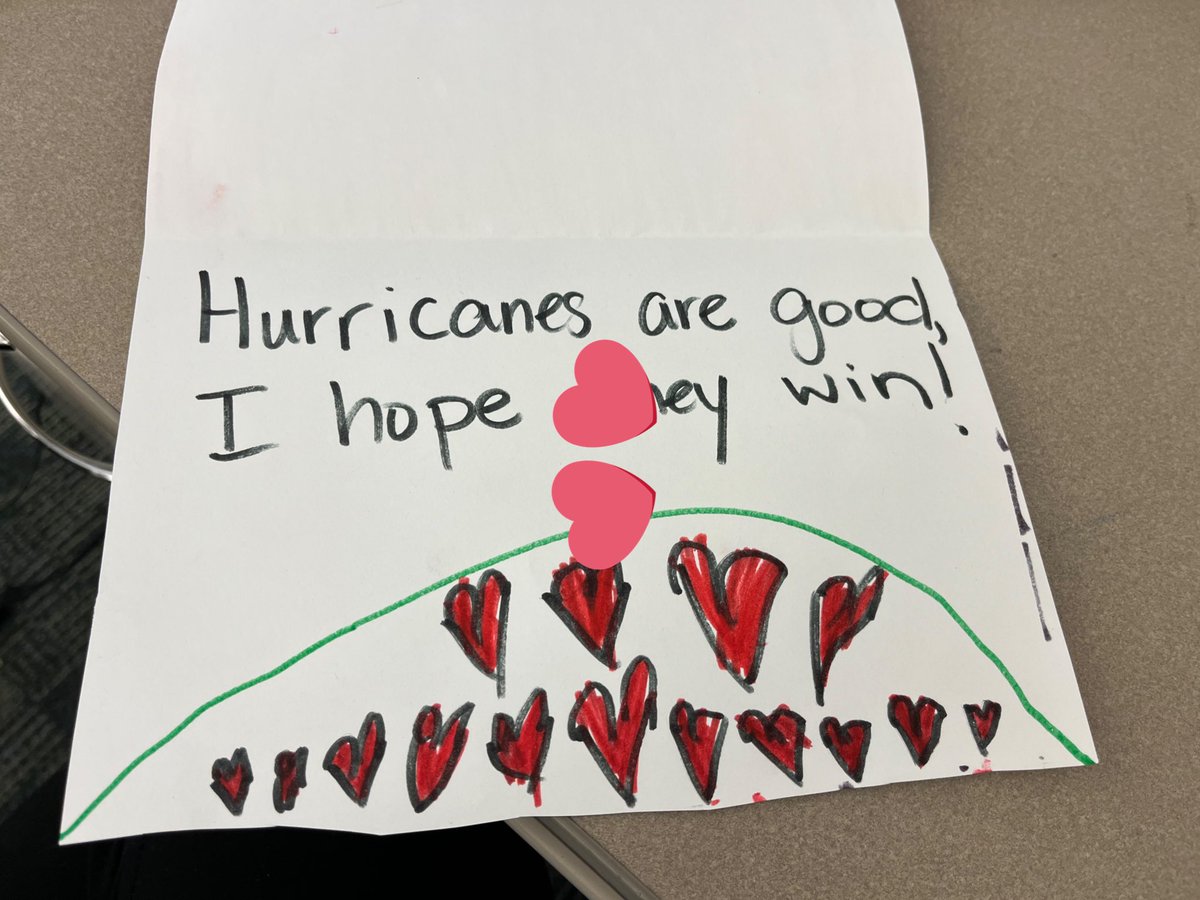 Hurricanes are good,
I hope they win!